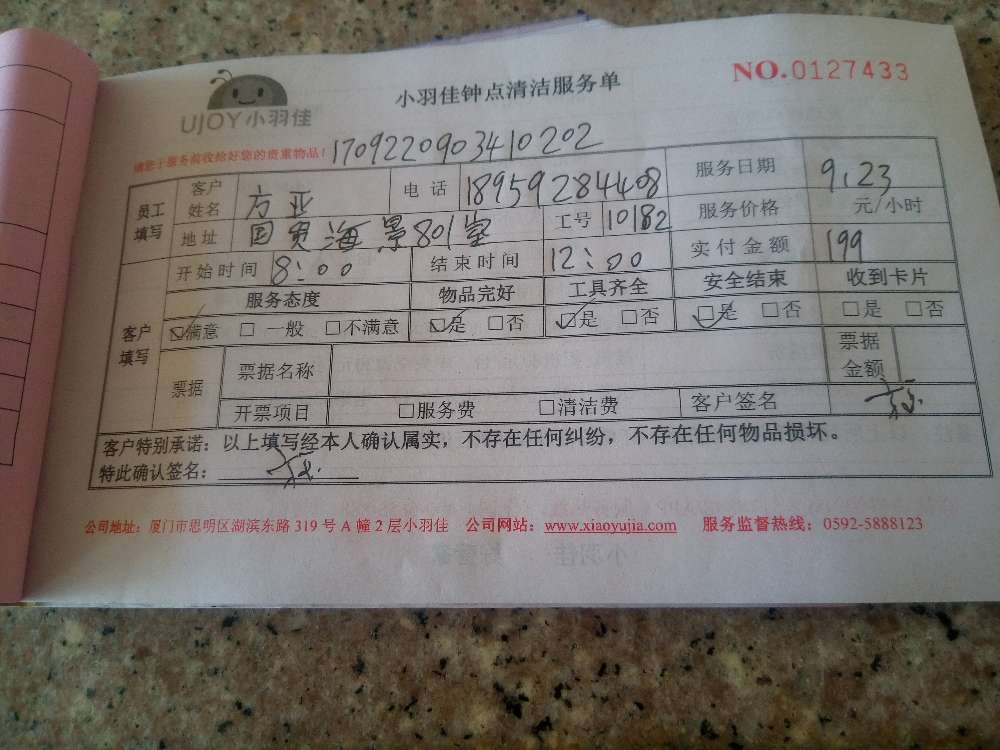 UJOY小羽佳
小羽佳钟点清洁服务单
NO.0127433
请您于服务前收拾好您的贵重物品!
1709220903410202
员工填写 客户姓名 方亚 电话 18959284408 服务日期 9.23
地址 国贸海景801室 工号 10182 服务价格 元/小时
开始时间 8:00 结束时间 12:00 实付金额 199
客户填写 服务态度 物品完好 工具齐全 安全结束 收到卡片
☑满意 □一般 □不满意 ☑是 □否 ☑是 □否 ☑是 □否 □是 □否
票据 票据名称 票据金额
开票项目 □服务费 □清洁费 客户签名
客户特别承诺：以上填写经本人确认属实，不存在任何纠纷，不存在任何物品损坏。
特此确认签名：
公司地址：厦门市思明区湖滨东路 319 号 A 幢 2 层小羽佳 公司网站：www.xiaoyujia.com 服务监督热线：0592-5888123